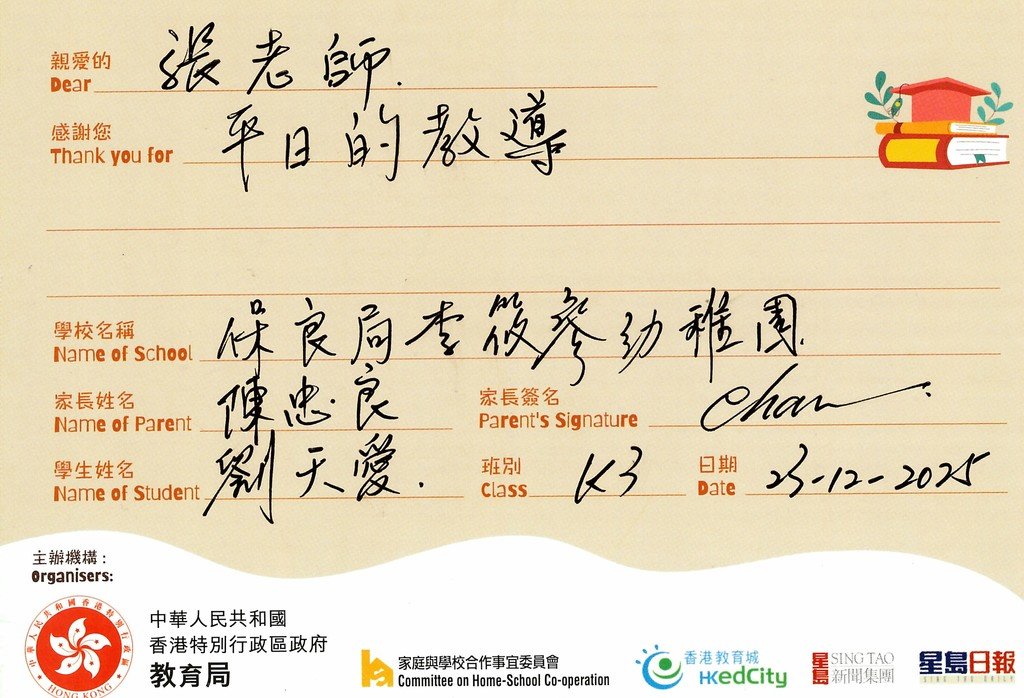 親愛的 張老師.
Dear
感謝您 平日的教導
Thank you for
學校名稱 保良局李筱參幼稚園
Name of School
家長姓名 陳忠良 家長簽名 Chan
Name of Parent Parent's Signature
學生姓名 劉天愛. 班別 K3 日期 23-12-2025
Name of Student Class Date
主辦機構:
Organisers:
中華人民共和國香港特別行政區
HONG KONG
中華人民共和國
香港特別行政區政府
教育局
家庭與學校合作事宜委員會
Committee on Home-School Co-operation
香港教育城
HKedCity
星島 SING TAO
新聞集團
星島日報
SING TAO DAILY